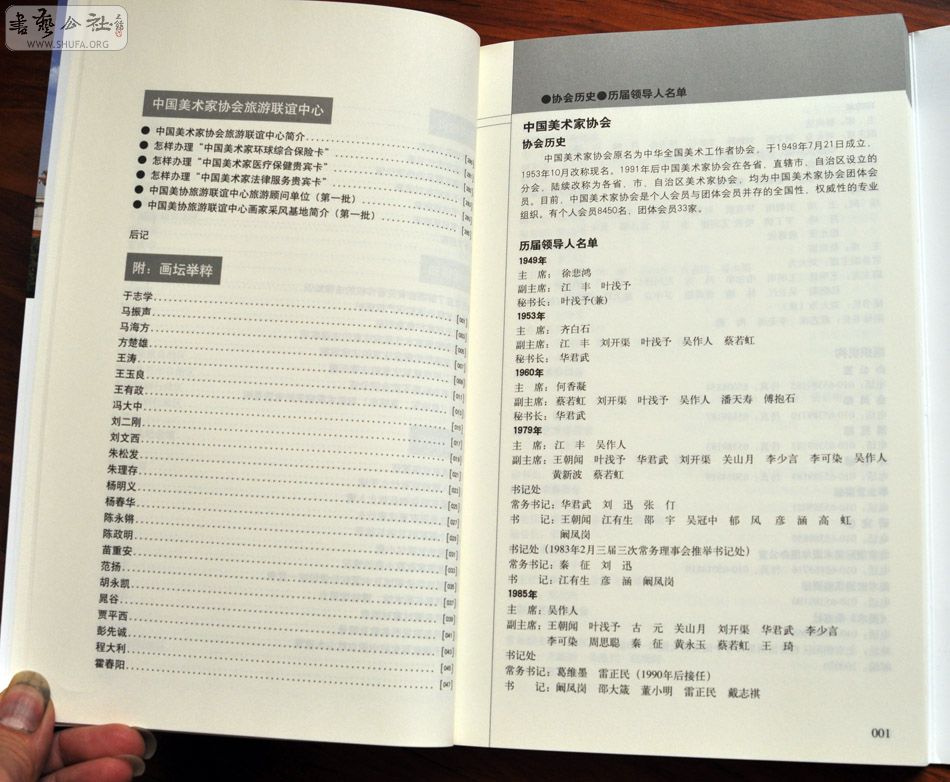 書藝公社
WWW.SHUFA.ORG
中国美术家协会旅游联谊中心
● 中国美术家协会旅游联谊中心简介
● 怎样办理“中国美术家环球综合保险卡”
● 怎样办理“中国美术家医疗保健贵宾卡”
● 怎样办理“中国美术家法律服务贵宾卡”
● 中国美协旅游联谊中心旅游顾问单位（第一批）
● 中国美协旅游联谊中心画家采风基地简介（第一批）
后记
附：画坛举粹
于志学 [001]
马振声 [003]
马海方 [005]
方楚雄 [007]
王涛 [009]
王玉良 [011]
王有政 [013]
冯大中 [015]
刘二刚 [017]
刘文西 [019]
朱松发 [021]
朱理存 [023]
杨明义 [025]
杨春华 [027]
陈永锵 [029]
陈政明 [031]
苗重安 [033]
范扬 [035]
胡永凯 [037]
晁谷 [039]
贾平西 [041]
彭先诚 [043]
程大利 [045]
霍春阳 [047]
●协会历史●历届领导人名单
中国美术家协会
协会历史
中国美术家协会原名为中华全国美术工作者协会，于1949年7月21日成立，
1953年10月改称现名。1991年后中国美术家协会在各省、直辖市、自治区设立的
分会，陆续改称为各省、市、自治区美术家协会，均为中国美术家协会团体会
员。目前，中国美术家协会是个人会员与团体会员并存的全国性、权威性的专业
组织。有个人会员8450名，团体会员33家。
历届领导人名单
1949年
主　席：徐悲鸿
副主席：江　丰　叶浅予
秘书长：叶浅予(兼)
1953年
主　席：齐白石
副主席：江　丰　刘开渠　叶浅予　吴作人　蔡若虹
秘书长：华君武
1960年
主　席：何香凝
副主席：蔡若虹　刘开渠　叶浅予　吴作人　潘天寿　傅抱石
秘书长：华君武
1979年
主　席：江　丰　吴作人
副主席：王朝闻　叶浅予　华君武　刘开渠　关山月　李少言　李可染　吴作人
黄新波　蔡若虹
书记处
常务书记：华君武　刘　迅　张　仃
书　　记：王朝闻　江有生　邵　宇　吴冠中　郁　风　彦　涵　高　虹
阚凤岗
书记处（1983年2月三届三次常务理事会推举书记处）
常务书记：秦　征　刘　迅
书　　记：江有生　彦　涵　阚凤岗
1985年
主　席：吴作人
副主席：王朝闻　叶浅予　古　元　关山月　刘开渠　华君武　李少言
李可染　周思聪　秦　征　黄永玉　蔡若虹　王　琦
书记处
常务书记：葛维墨　雷正民（1990年后接任）
书　　记：阚凤岗　邵大箴　董小明　雷正民　戴志祺
001